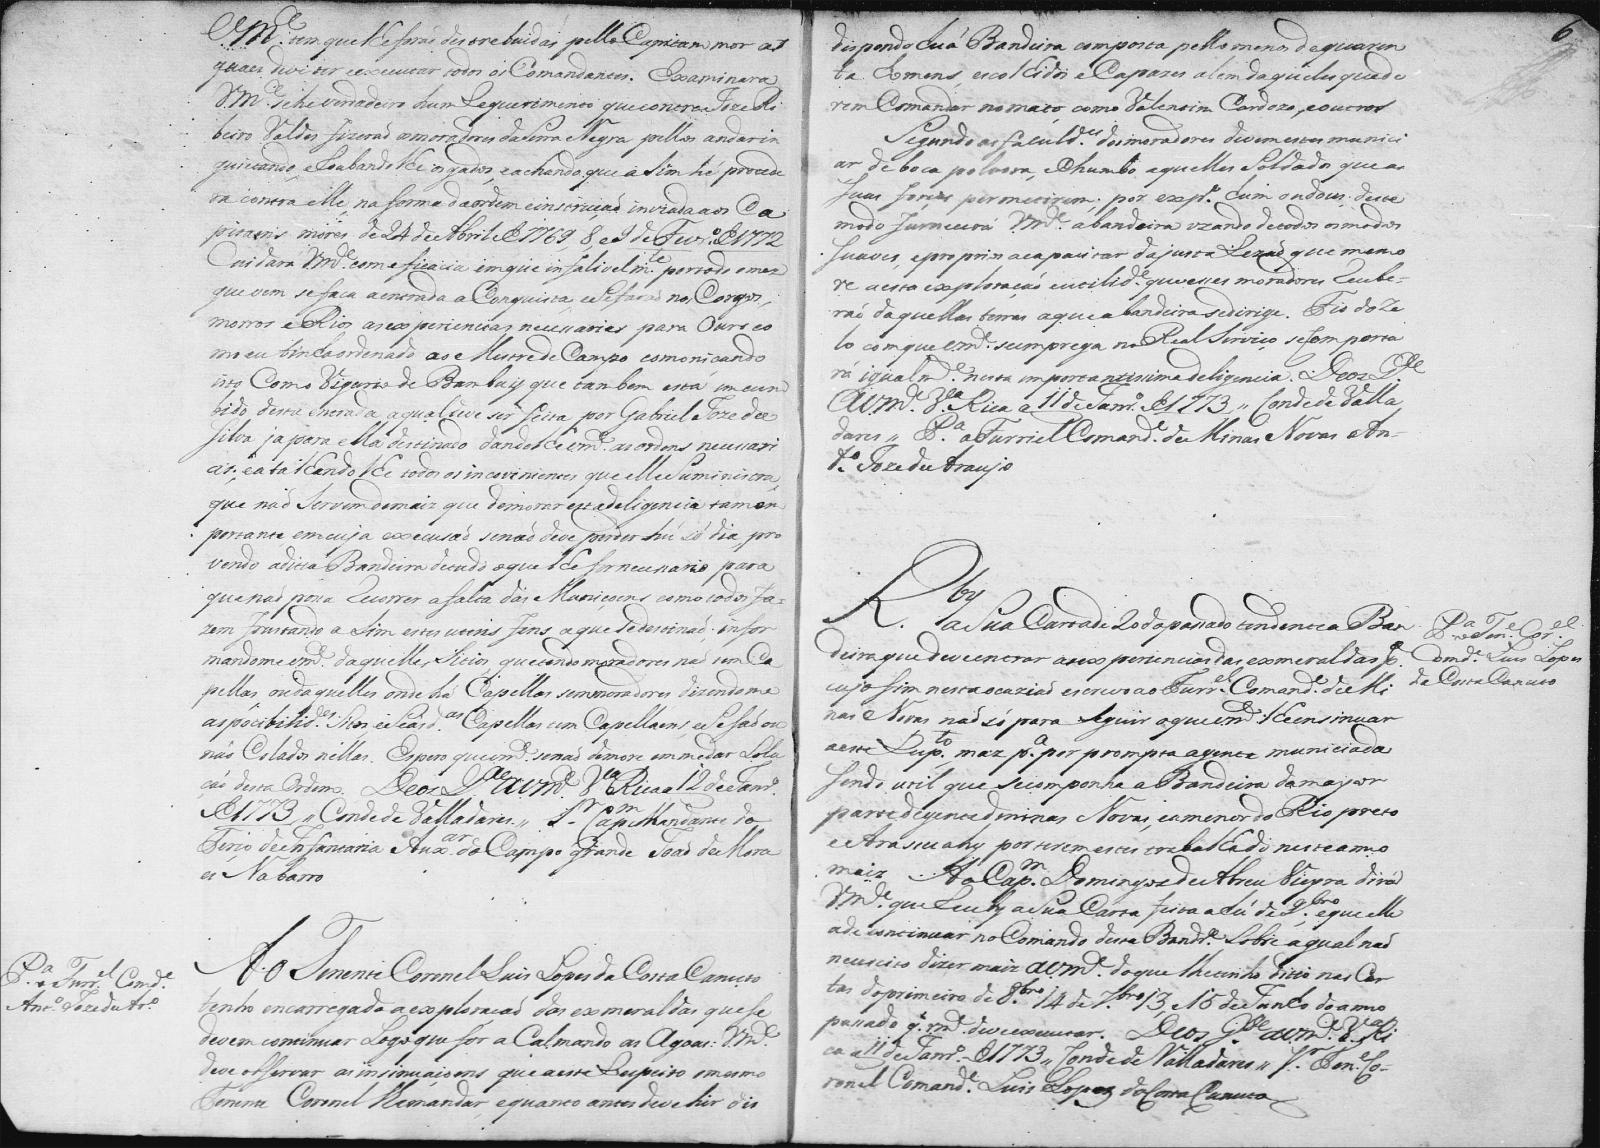 V.M.ce tem que lhe foraõ destrebuidas pello Capitam mor as
quaes deve ter e executar todos os Comandantes. Examinara
V.M.ce se he verdadeiro hum Requerimento que contra Joze Ri
beiro Valdes fizeraõ os moradores da Serra Negra pellos andar in
quietando, e Roubandolhe os gados, e achando que asim hé procede
ra contra elle, na forma da ordem e instruçaõ inviada aos Ca
pitaens móres de 24 de Abril de 1769, 8, e 9 de Fevr.o de 1772
Cuidará V.M.ce com eficacia em que infalivelm.te por todo o mez
que vem se faça a entrada a Conquista, e se façaõ nos Corgos,
morros e Rios as experiencias necessarias para Ouro co
mo eu tinha ordenado ao Mestre de Campo comonicando
isto Com o Vigario de Bambuij que tambem está incum
bido desta entrada a qual deve ser feita por Gabriel Joze da
Silva ja para ella destinado dandolhe v.m.ce as ordens necessari
as, e atalhandolhe todos os incovinientes que elle Suministra,
que naõ Servem de mais que demorar esta deligencia tam im
portante, em cuja execusaõ senaõ deve perder hú só dia, pro
vendo a dita Bandeira de tudo o que lhe for necesario para
que naõ posa Recorrer a falta das Municoens como todos fa=
zem frustando asim estes uteis fins a que se destinaõ. infor
mandome v.m.ce daquelles Sitios, que tendo moradores naõ tem Ca
pellas ou daquelles onde há Capellas sem moradores dizendome
as pocibilid.es
naõ Colados nellas. Espero que v.m.ce senaõ demore em me dar Solu
çaõ desta Ordem. Deos G.de a v.m.ce V.a Rica a 12 de Janr.o
de 1773 „ Conde de Valladares „ S.r Cap.m Mandante do
Terço de Infantaria Aux.ar do Campo grande Joaõ de Mora
es Nabarro
P.a o Furr.el Comd.e
Ant.o Joze de Ar.o
Ao Tenente Coronel Luis Lopes da Costa Canuto
tenho encarregado a exploraçaõ das exmeraldas que se
devem continuar Logo que for a Calmando as Agoas: V.M.ce
deve observar as insinuaçoens que a este Respeito o mesmo
Tenente Coronel lhe mandar, e quanto antes deve hir dis
6
dispondo hua Bandeira composta pello menos de quaren
ta homens, escolhidos e Capazes alem daqueles que de
vem Comandar no mato, como Valentim Cardozo, e outros
Segundo as faculd.es dos moradores devem estes munici
ar de boca polvora, e chumbo aquelles Soldados que as
suas forças permetirem; por exp.o hum ou dous: deste
modo furnecerá V.M.ce a bandeira uzando de todos os modos
suaves, e proprios a capacitar da justa Rezaõ que mere
re a esta exploraçaõ e utilid.e que esses moradores Recebe=
raõ daquellas terras a que a bandeira se dirige. Fio do ze
lo com que v.m.ce se emprega no Real Serviço se comporta
rá igualm.te nesta importantissima deligencia. Deos G.de
a V.M.ce V.a Rica a 11 de Janr.o de 1773 „ Conde de Valla
dares „ P.a o Furriel Comand.e de Minas Novas An=
t.o Joze de Araujo
P.a o Ten.e Cor.el
Comd.e Luis Lopes
da Costa Canuto
R.by a Sua Carta de 20 do passado tendente a Ban
deira que deve entrar as experiencias das exmeraldas p.a
cujo fim nesta ocaziaõ escrevo ao Furr.el Comand.e de Mi
nas Novas naõ só para seguir o que v.m.ce lhe ensinuar
a este Resp.to, mas p.a por prompta a gente municiada
sendo util que se componha a Bandeira da mayor
parte de gente de minas Novas, e a menor do Rio preto
e Arasuahy por terem estes trabalhado neste anno
maiz. Ao Cap.m Domingos de Abreu Vieyra dirá
V.M.ce que Recby a Sua Carta feita a hú de 9.bro e que elle
ade continuar no Comando desta Band.ra Sobre a qual naõ
necescito dizer mais a v.m.ce do que lhe tenho ditto nas Car
tas do primeiro de 8.bro 14 de 7.bro 13, e 15 de Junho do anno
passado q. v.m.ce deve executar. Deos g.de a v.m.ce V.a Ri
ca a 11 de Janr.o de 1773 „ Conde de Valladares „ S.r Ten.e Co=
ronel Comand.e Luis Lopez da Costa Canuto